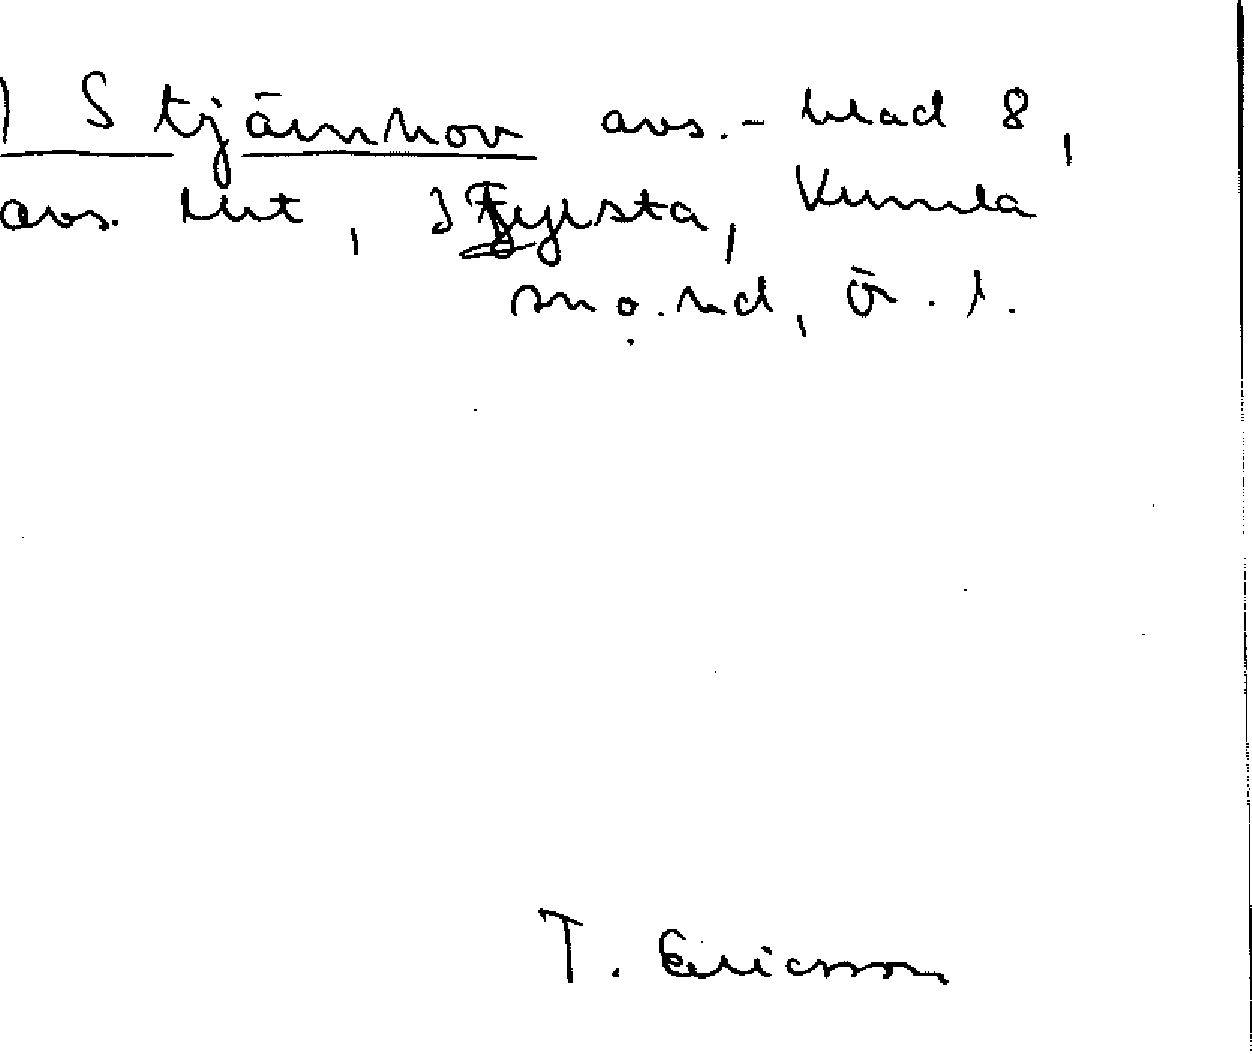 ) Stjärnhov avs.-blad 8,
avs. till, Fyrsta, Kumla
sn o. hd, Ö. l.
T. Ericsson